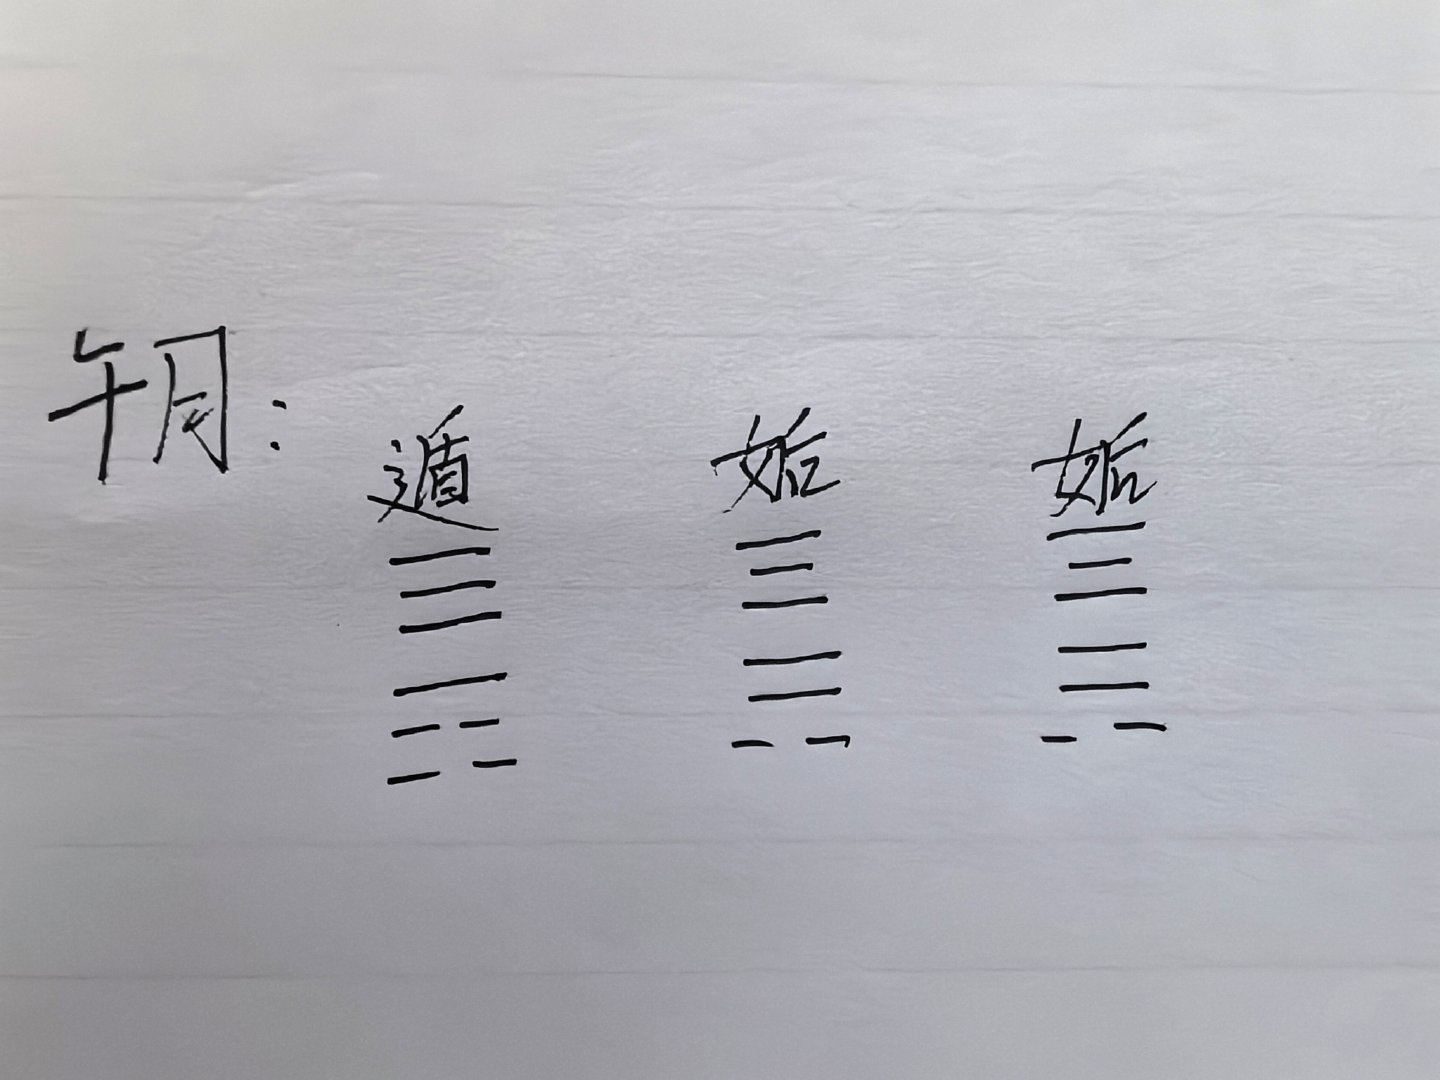 午月：
遁 姤 姤